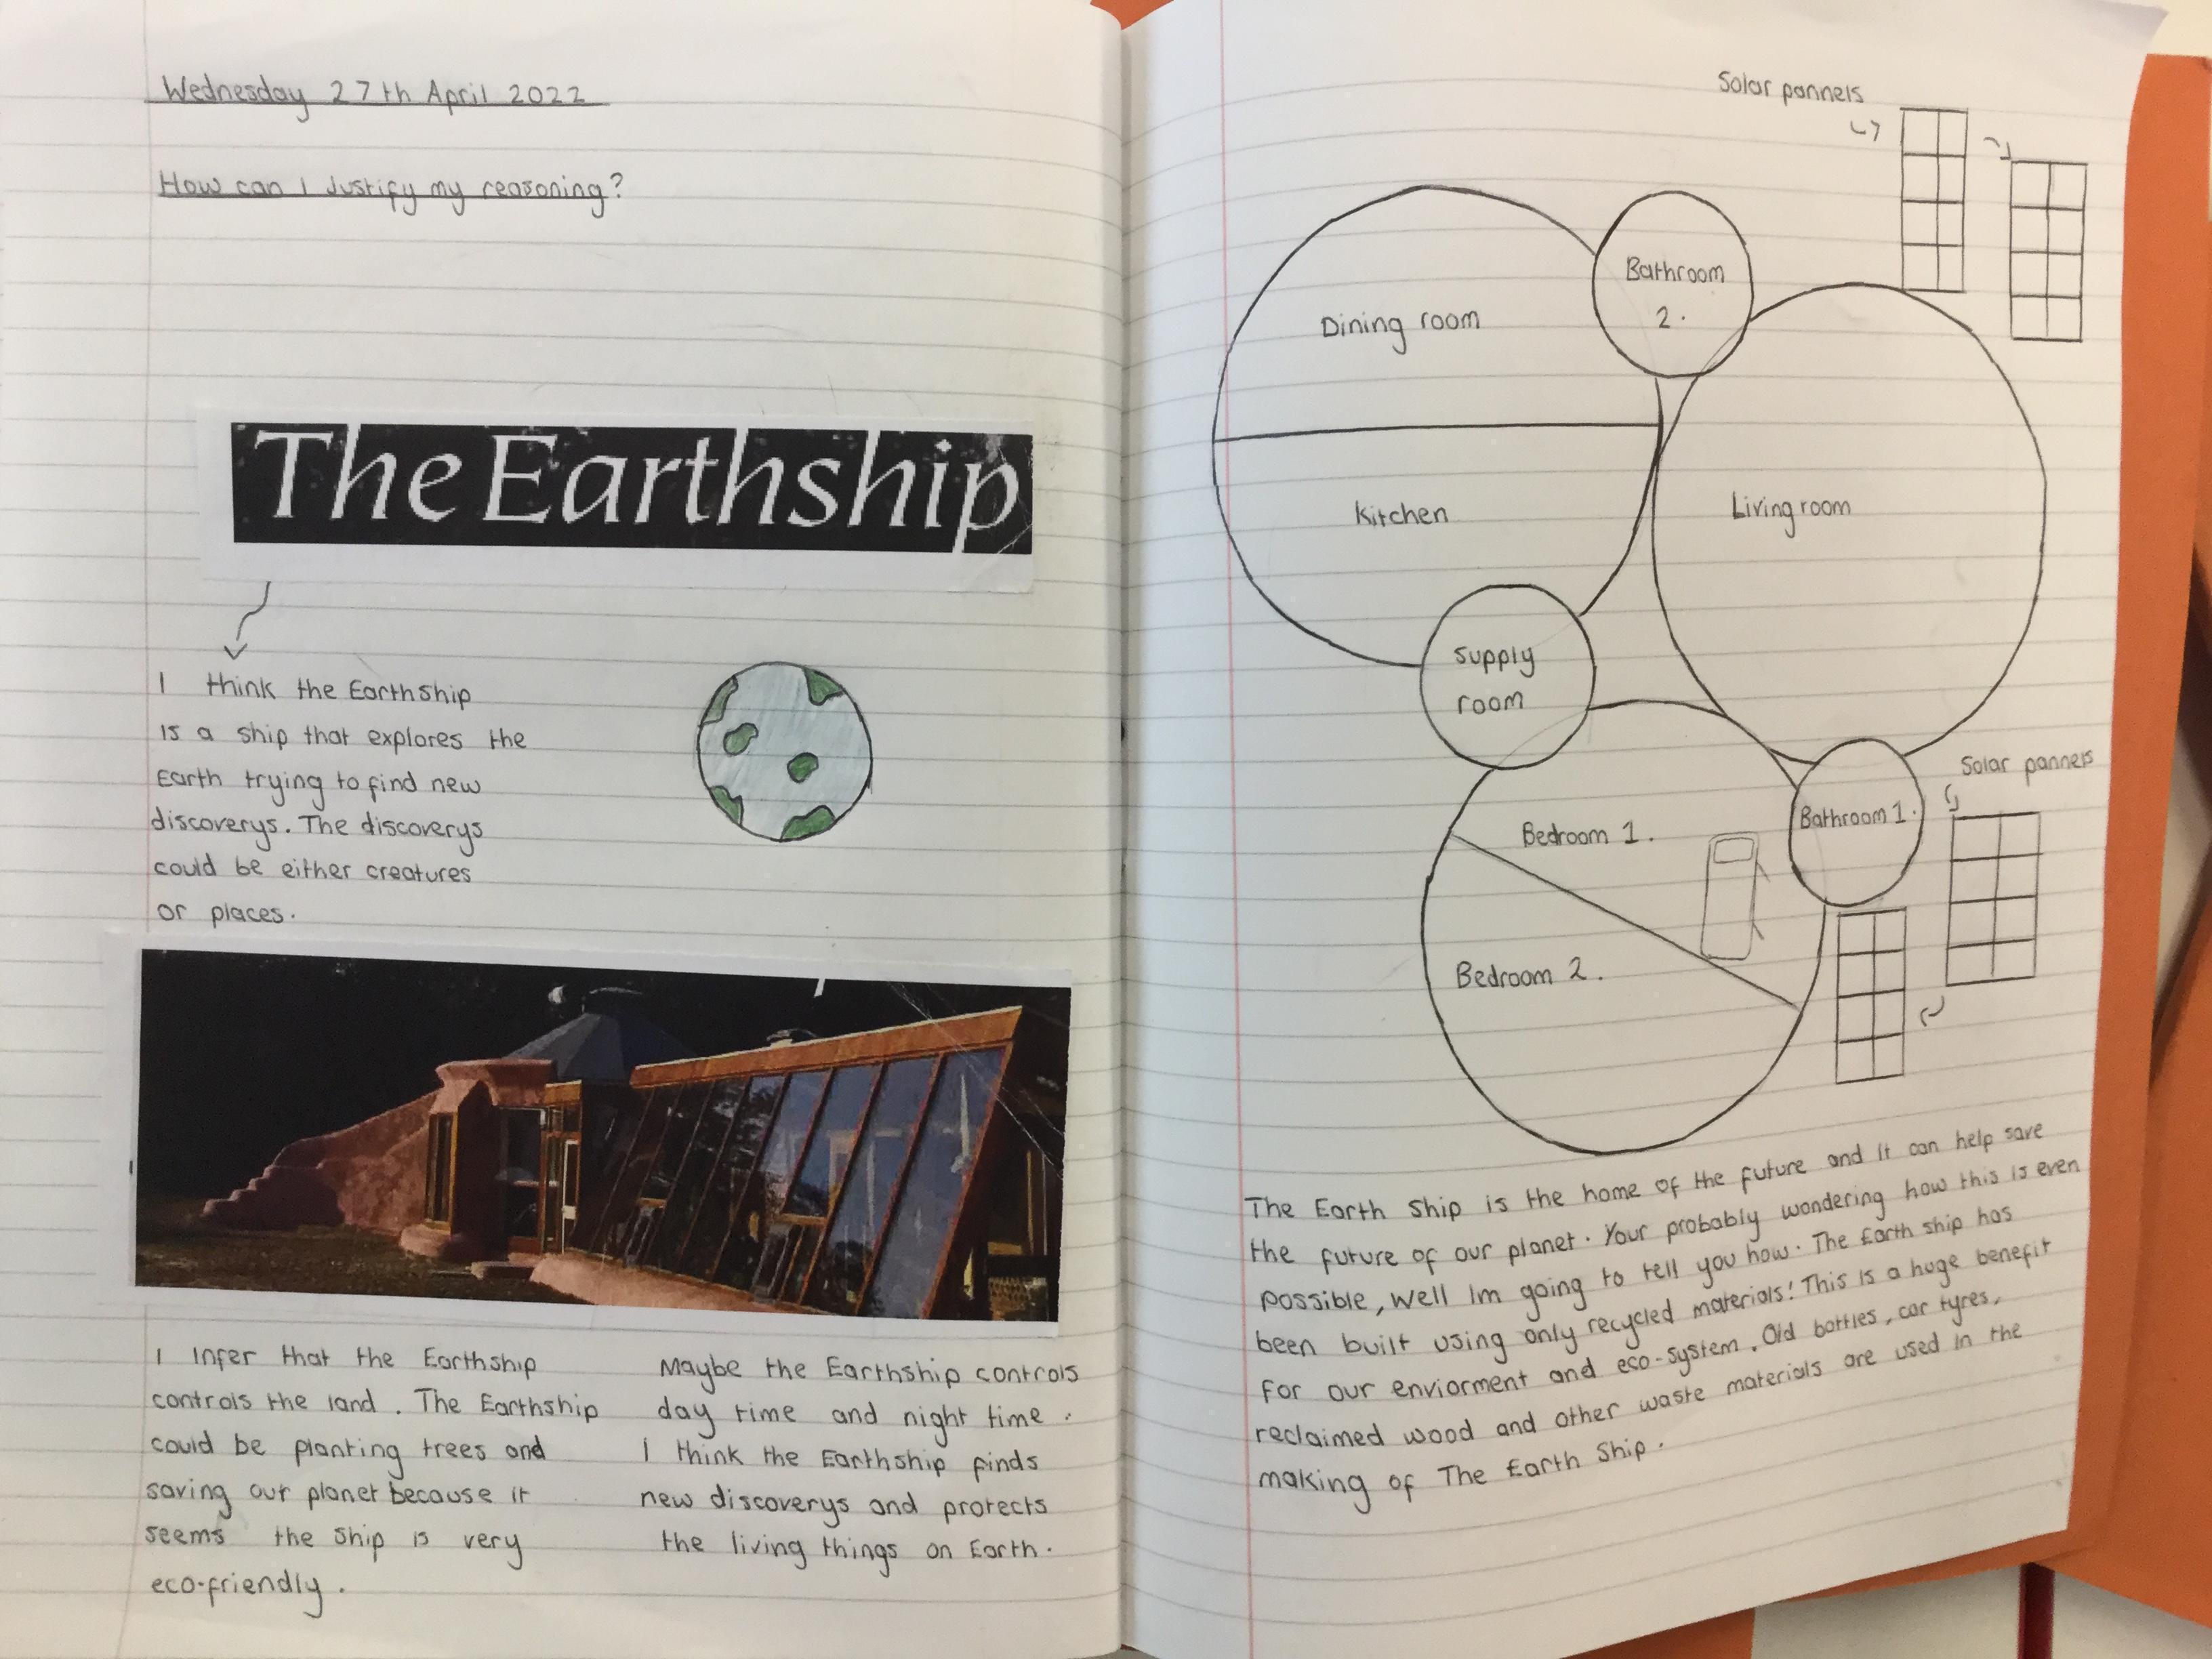 Wednesday 27th April 2022
How can I Justify my reasoning?
The Earthship
I think the Earthship
is a ship that explores the
Earth trying to find new
discoverys. The discoverys
could be either creatures
or places.
I infer that the Earthship
controls the land. The Earthship
could be planting trees and
saving our planet because it
seems the ship is very
eco-friendly.
Maybe the Earthship controls
day time and night time.
I think the Earthship finds
new discoverys and protects
the living things on Earth.
Solar pannels
Bathroom
2.
Dining room
Kitchen
Living room
Supply
room
Solar pannels
Bathroom 1.
Bedroom 1.
Bedroom 2.
The Earth Ship is the home of the future and it can help save
the future of our planet. Your probably wondering how this is even
possible, well Im going to tell you how. The Earth ship has
been built using only recycled materials! This is a huge benefit
for our enviorment and eco-system. Old bottles, car tyres,
reclaimed wood and other waste materials are used in the
making of The Earth Ship.